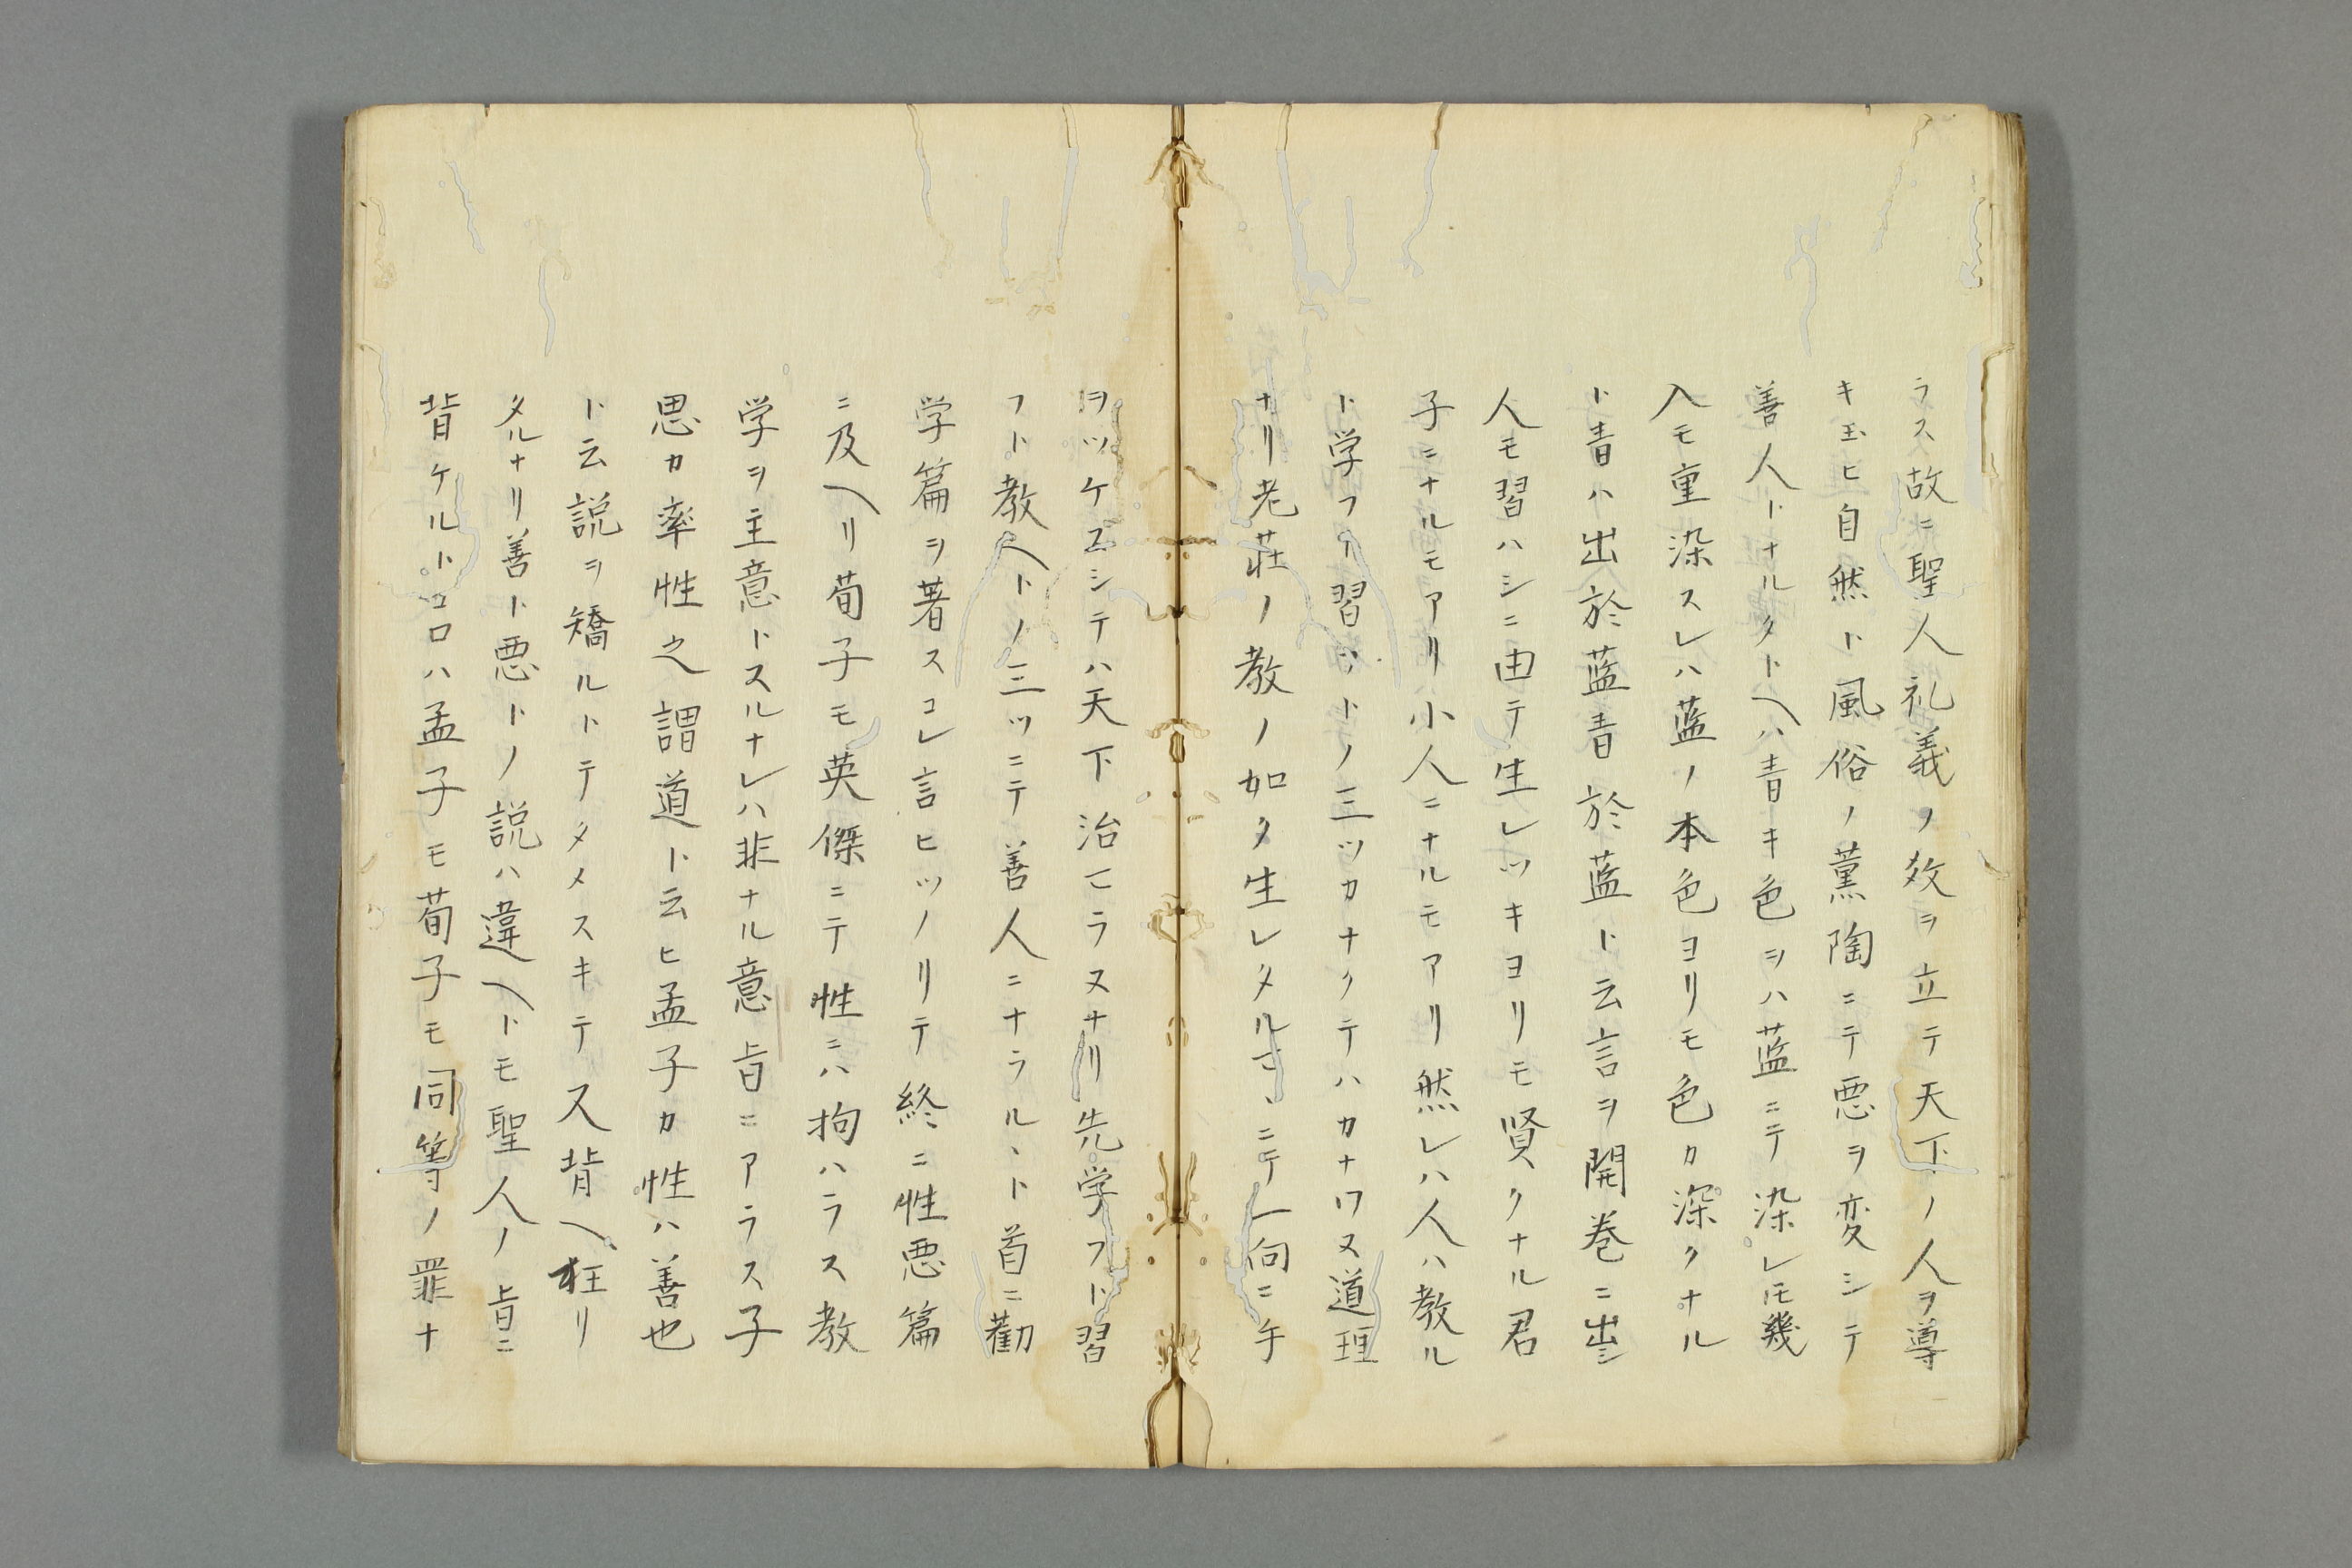 ラス故ニ聖人礼義ノ教ヲ立テ天下ノ人ヲ導
キ玉ヒ自然ト風俗ノ薫陶ニテ悪ヲ変シテ
善人トナルタトヘハ青キ色ヲハ藍ニテ染レ𪜈幾
入モ重染スレハ藍ノ本色ヨリモ色カ深クナル
ト青ハ出於藍青於藍ト云言ヲ開巻ニ出シ
人モ習ハシニ由テ生レツキヨリモ賢クナル君
子ニナルモアリ小人ニナルモアリ然レハ人ハ教ル
ト学フト習フトノ三ツカナクテハカナワヌ道理
ナリ老荘ノ教ノ如ク生レタルマヽニテ一向ニ手
ヲツケズシテハ天下治マラヌナリ先学フト習
フト教ヘトノ三ツニテ善人ニナラルヽト首ニ勸
学篇ヲ著スコレ言ヒツノリテ終ニ性悪篇
ニ及ヘリ荀子モ英傑ニテ性ニハ拘ハラス教
学ヲ主意トスルナレハ非ナル意旨ニアラス子
思カ率性之謂道ト云ヒ孟子カ性ハ善也
ト云説ヲ矯ルトテタメスキテ又背ヘ枉リ
タルナリ善ト悪トノ説ハ違ヘトモ聖人ノ旨ニ
背ケルトコロハ孟子モ荀子モ同等ノ罪ナ